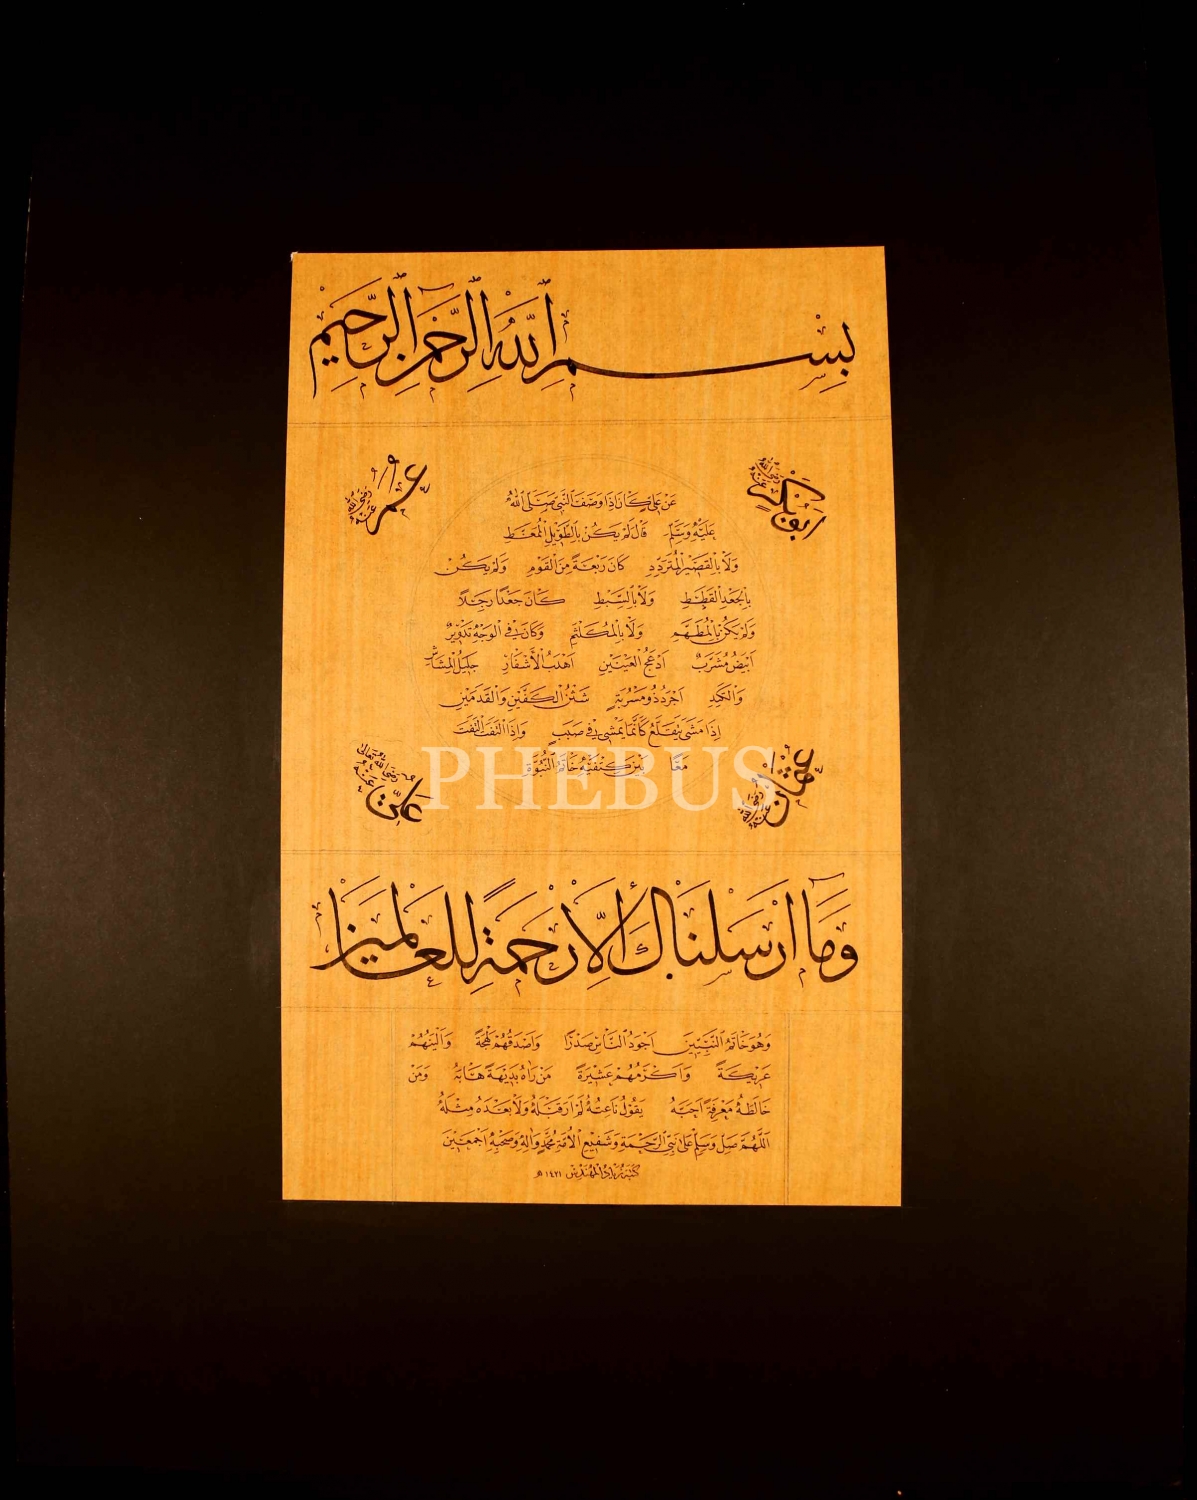 بِسْمِ ٱللَّهِ ٱلرَّحْمَٰنِ ٱلرَّحِيمِ
أبو بكر رضي الله عنه
عمر رضي الله عنه
عن علي كان اذا وصف النبي صلى الله
عليه وسلم قال لم يكن بالطويل الممغط
ولا بالقصير المتردد كان ربعة من القوم ولم يكن
بالجعد القطط ولا بالسبط كان جعدا رجلا
ولم يكن بالمطهم ولا بالمكلثم وكان في الوجه تدوير
ابيض مشرب ادعج العينين اهدب الأشفار جليل المشاش
والكتد اجرد ذو مسربة شثن الكفين والقدمين
اذا مشى يتقلع كأنما يمشي في صبب واذا التفت التفت
معا بين كتفيه خاتم النبوة
عثمان رضي الله عنه
علي رضي الله تعالى عنه
PHEBUS
وما ارسلناك الا رحمة للعالمين
وهو خاتم النبيين اجود الناس صدرا واصدقهم لهجة والينهم
عريكة واكرمهم عشيرة من رآه بديهة هابه ومن
خالطه معرفة احبه يقول ناعته لم ار قبله ولا بعده مثله
اللهم صل وسلم على نبي الرحمة وشفيع الأمة محمد وآله وصحبه اجمعين
كتبه زياد المهندس ١٤٢١ هـ